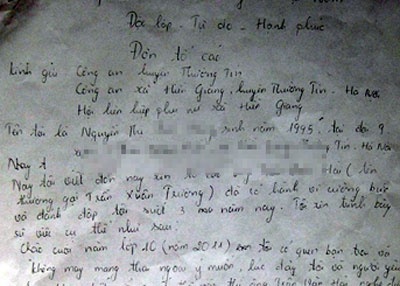 Độc lập - Tự do - Hạnh phúc
Đơn tố cáo
Kính gửi Công an huyện Thường Tín
Công an xã Hiền Giang, huyện Thường Tín - Hà Nội
Hội liên hiệp phụ nữ xã Hiền Giang
Tên tôi là Nguyễn Thu sinh năm 1995, tại đội 9
Tín, Hà Nội
Nay t
Nay tôi viết đơn này xin Hải (tên
thường gọi Trần Xuân Trường) đã có hành vi cưỡng bức
và đánh đập tôi suốt 3 năm nay. Tôi xin trình bày
sự việc cụ thể như sau.
Chắc cuối năm lớp 10 (năm 2011) em tôi có quen bạn trai và
không may mang thai ngoài ý muốn, lúc đấy tôi và người yêu
Trần Văn Hải nghe